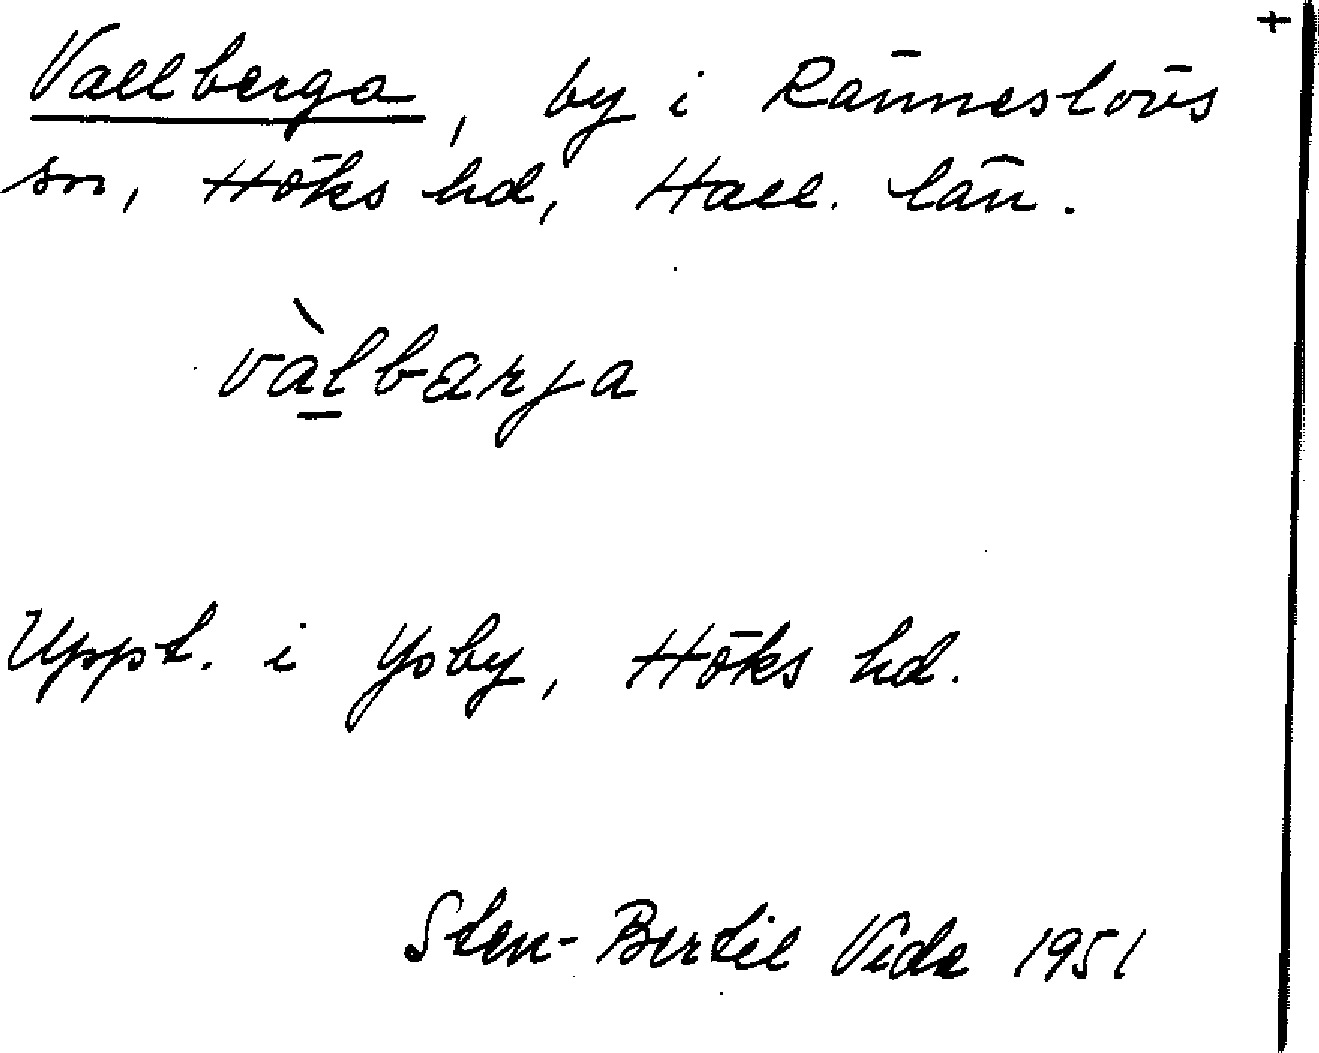 +
Vallberga, by i Ränneslövs
sn, Höks hd, Hall. län.
vàlbærja
Uppt. i Ysby, Höks hd.
Sten-Bertil Vide 1951